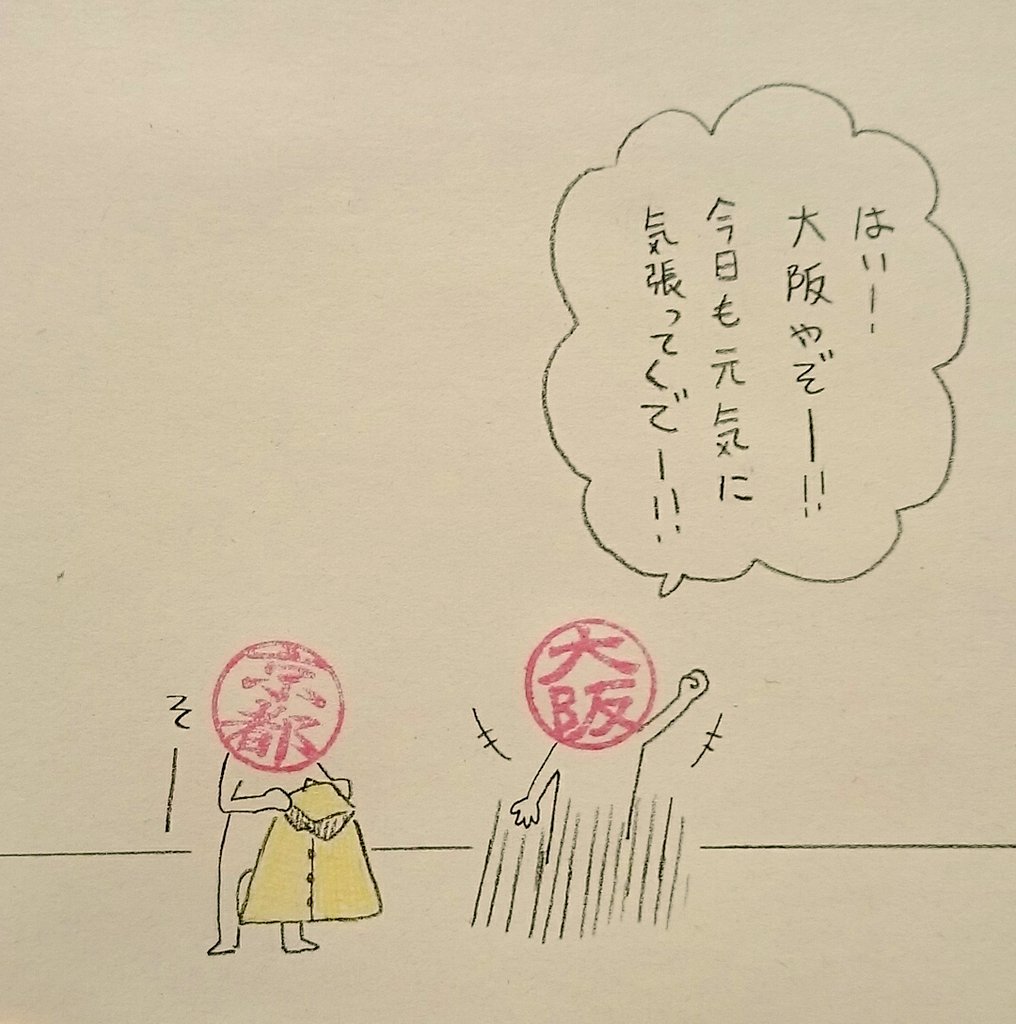 はいー
大阪やぞー!!
今日も元気に
気張ってくでー!!
大阪
京都
そー